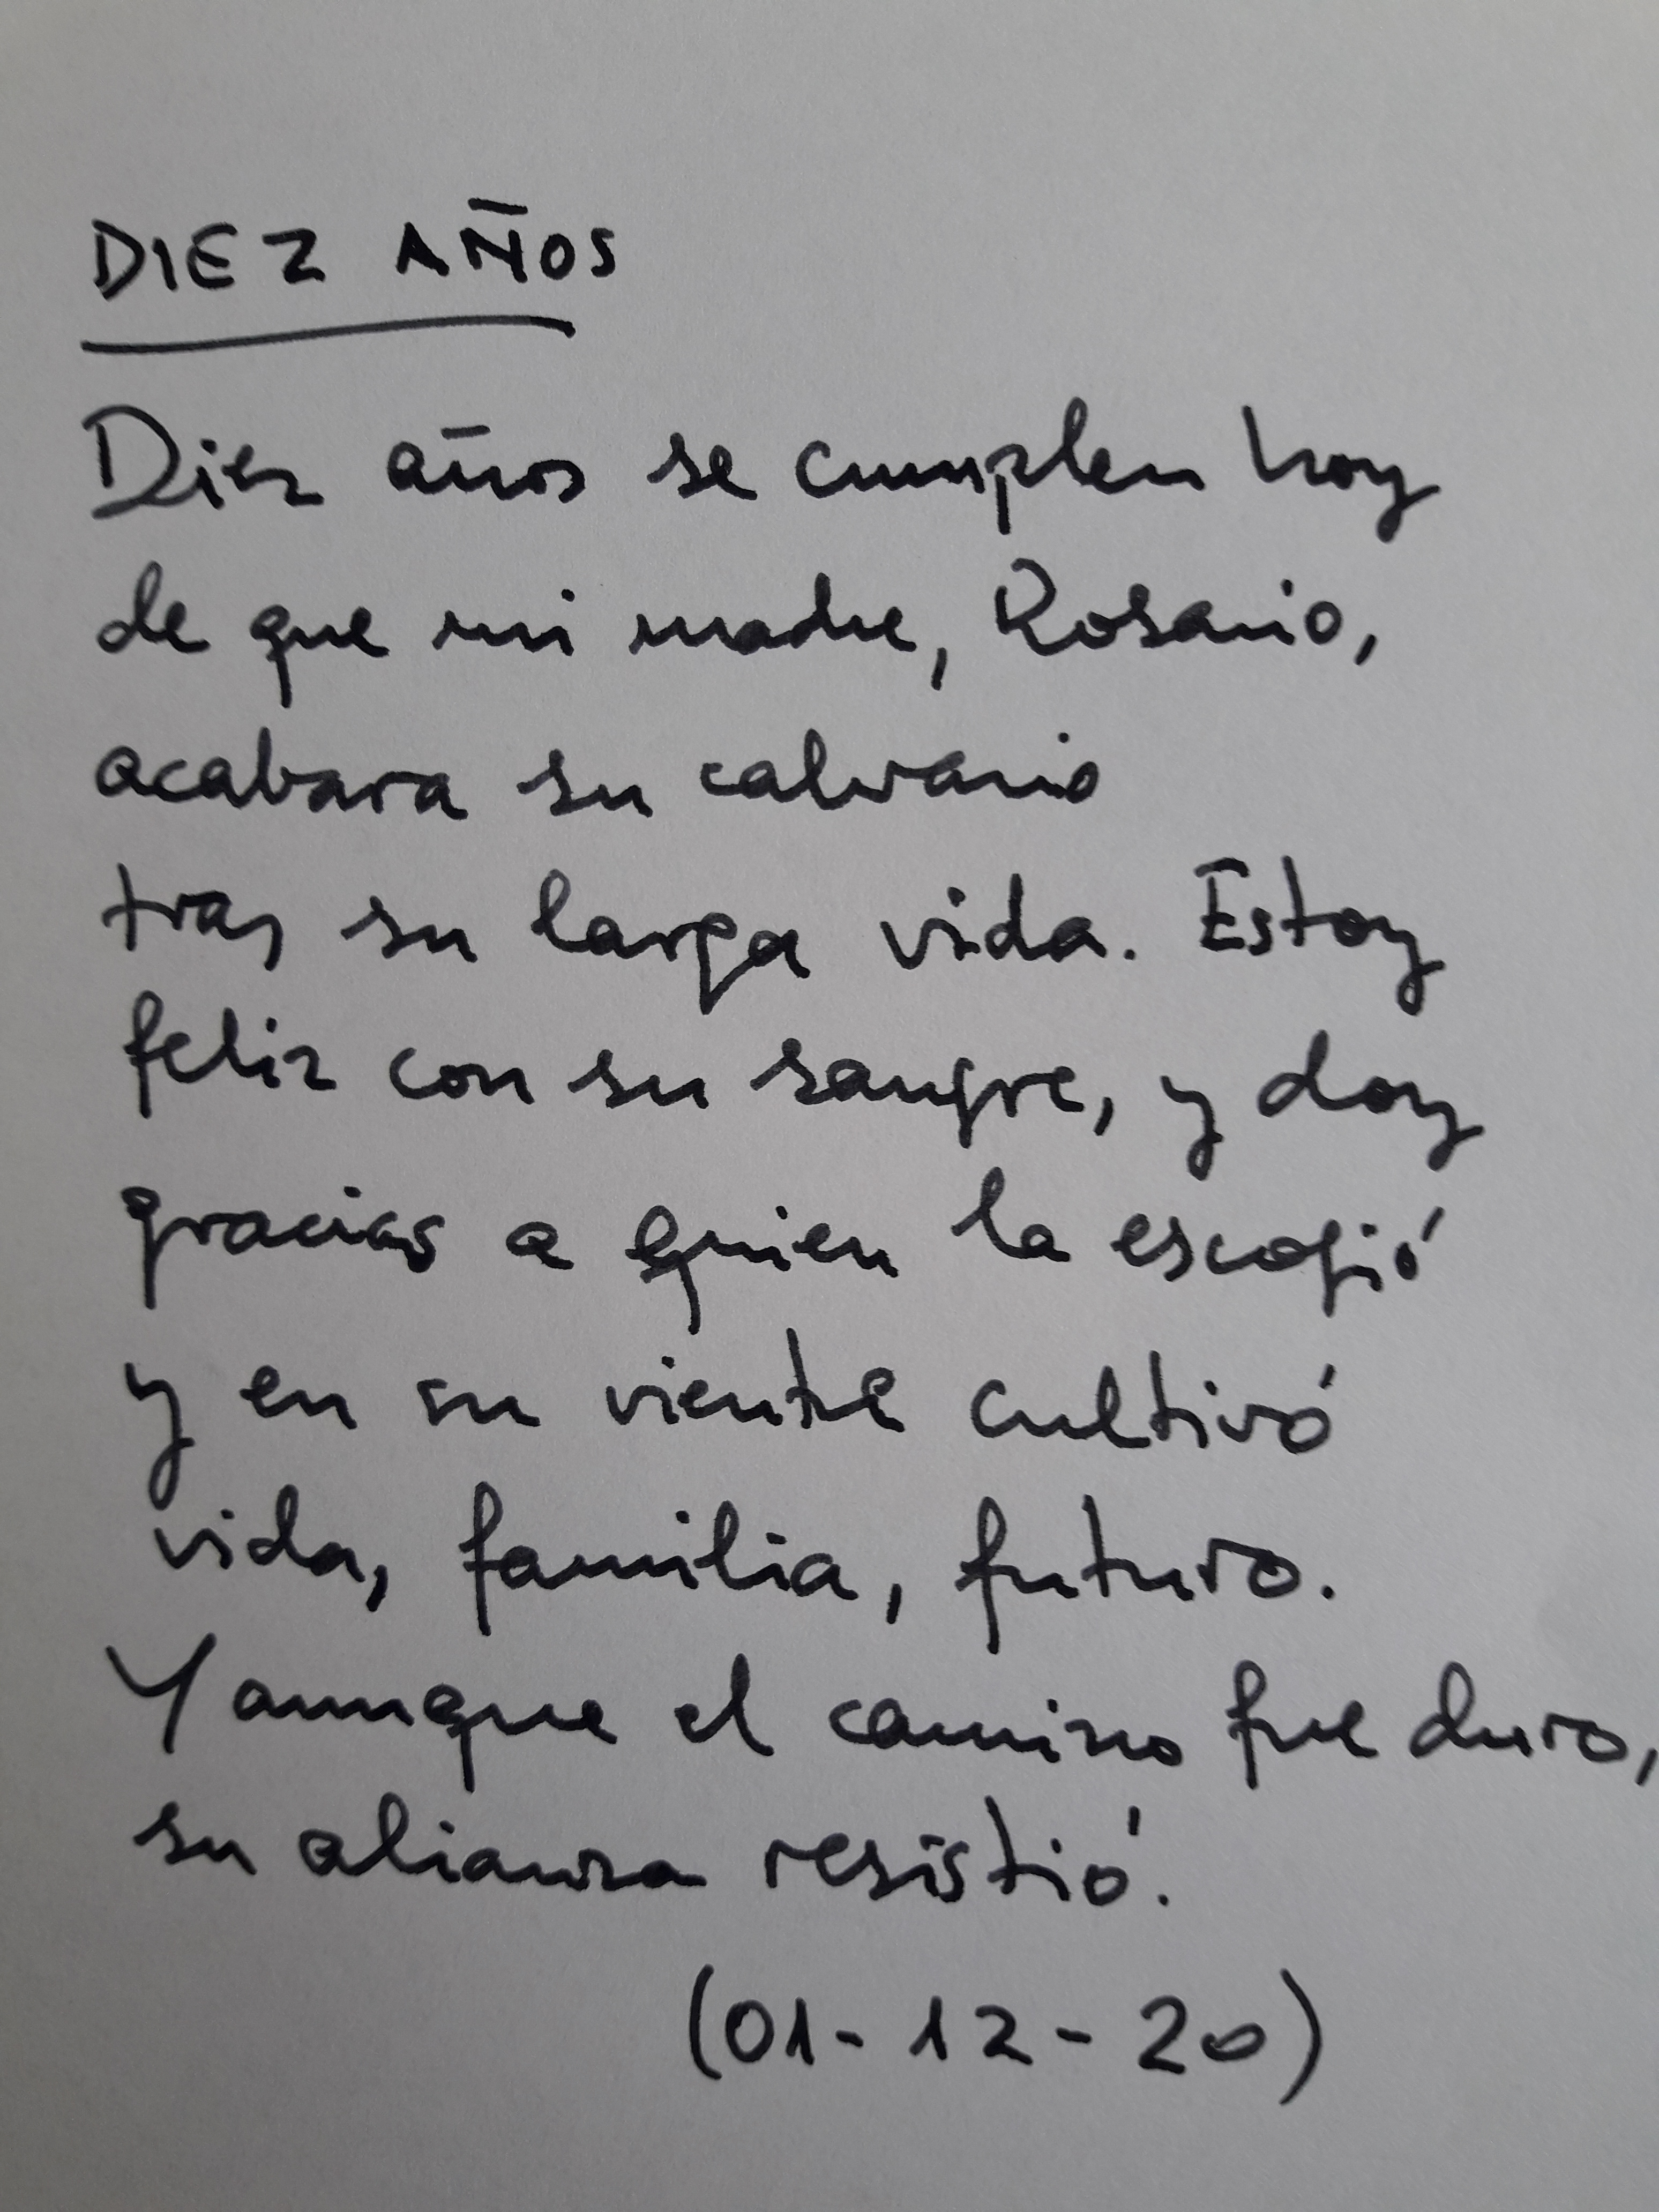 DIEZ AÑOS
Diez años se cumplen hoy
de que mi madre, Rosario,
acabara su calvario
tras su larga vida. Estoy
feliz con su sangre, y doy
gracias a quien la escogió
y en su vientre cultivó
vida, familia, futuro.
Y aunque el camino fue duro,
su alianza resistió.
(01-12-20)